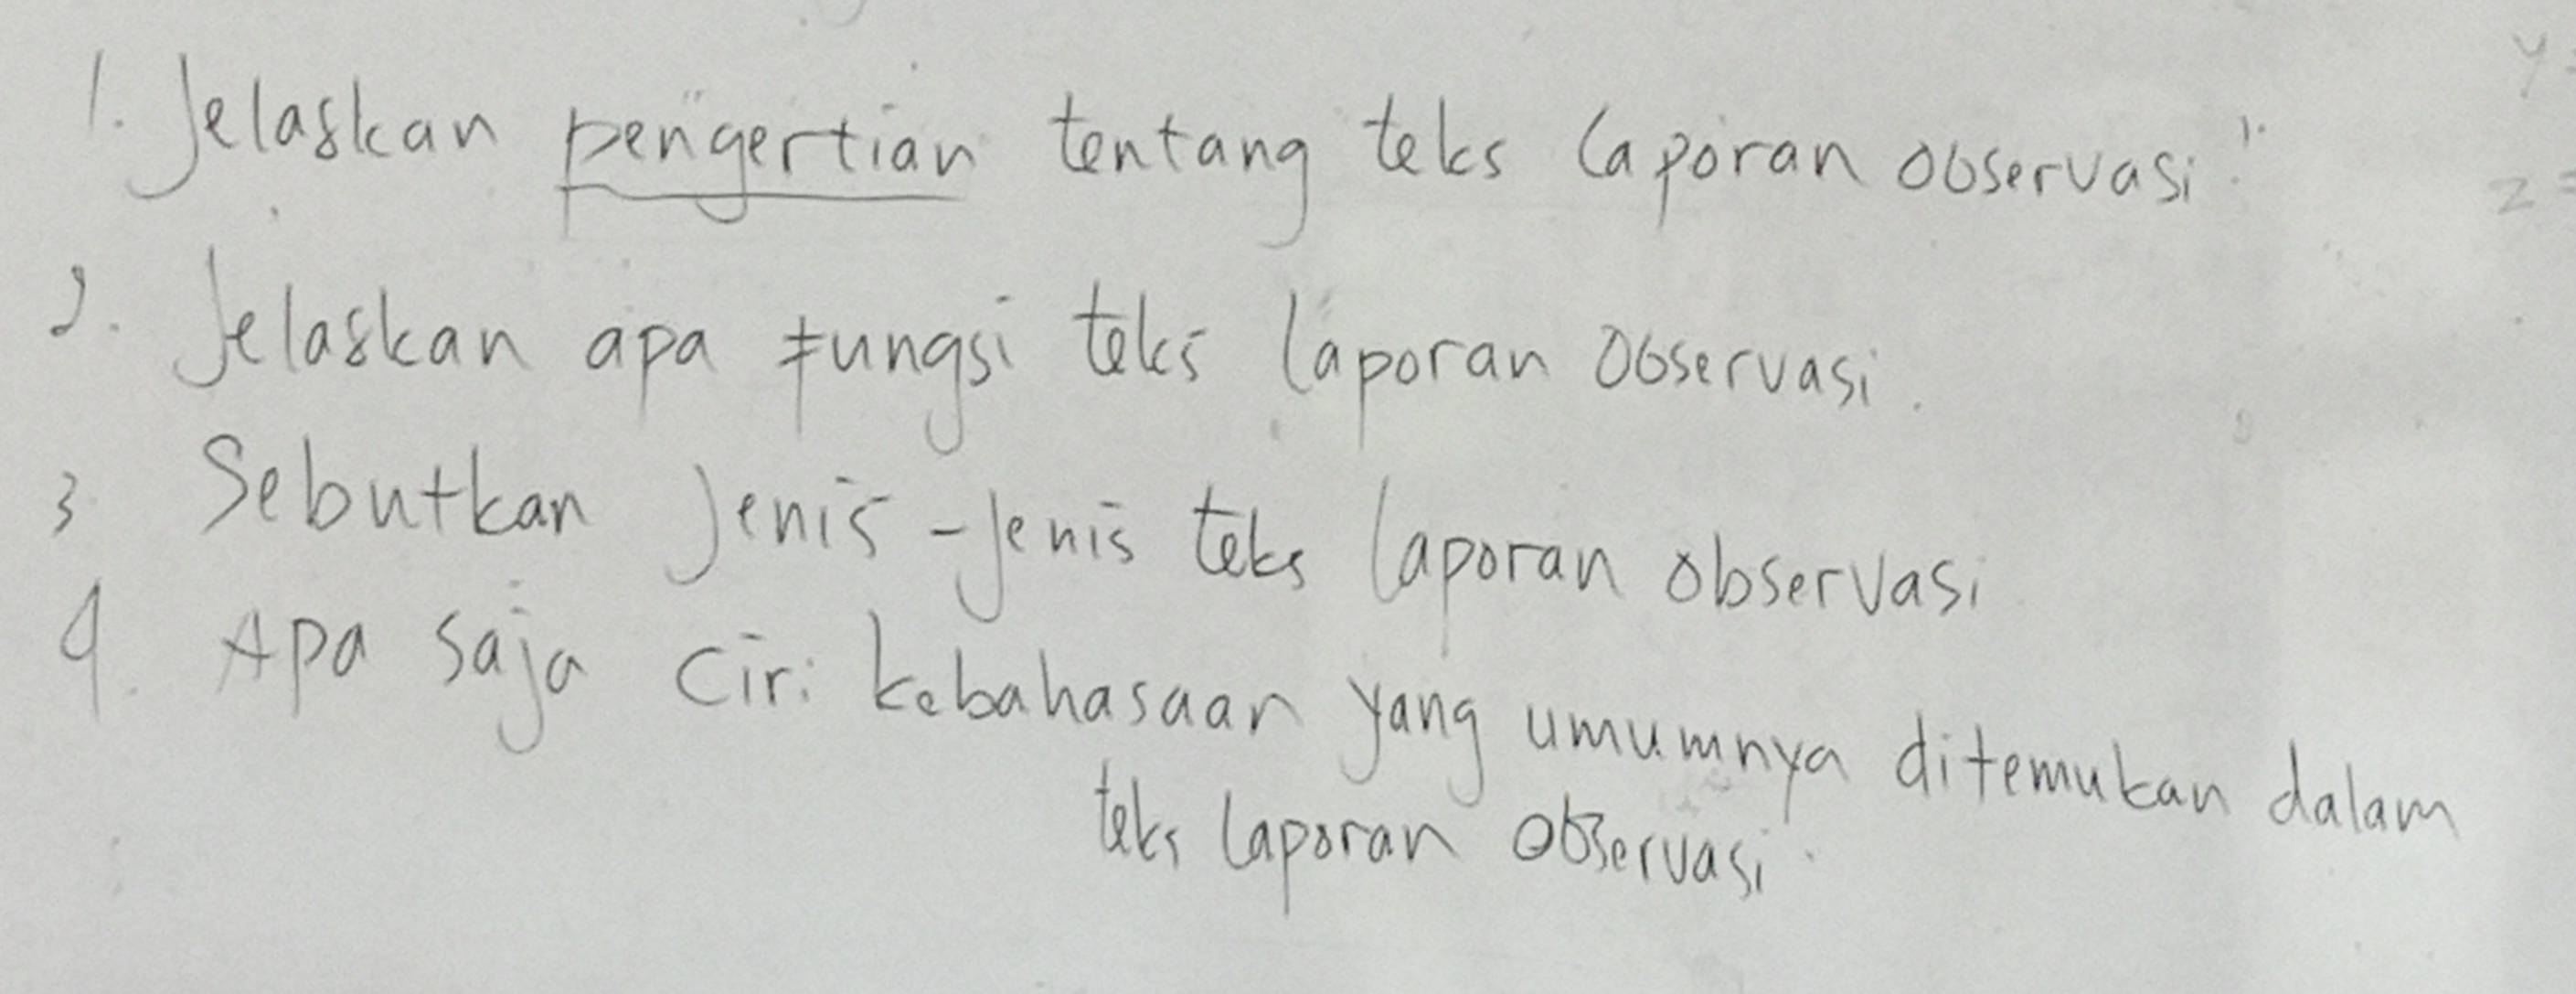 1. Jelaskan pengertian tentang teks laporan observasi!
2. Jelaskan apa fungsi teks laporan observasi.
3. Sebutkan jenis-jenis teks laporan observasi
4. Apa saja ciri kebahasaan yang umumnya ditemukan dalam
teks laporan observasi.
y=
z=